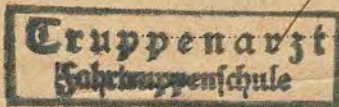 Truppenarzt
Fahrtruppenschule